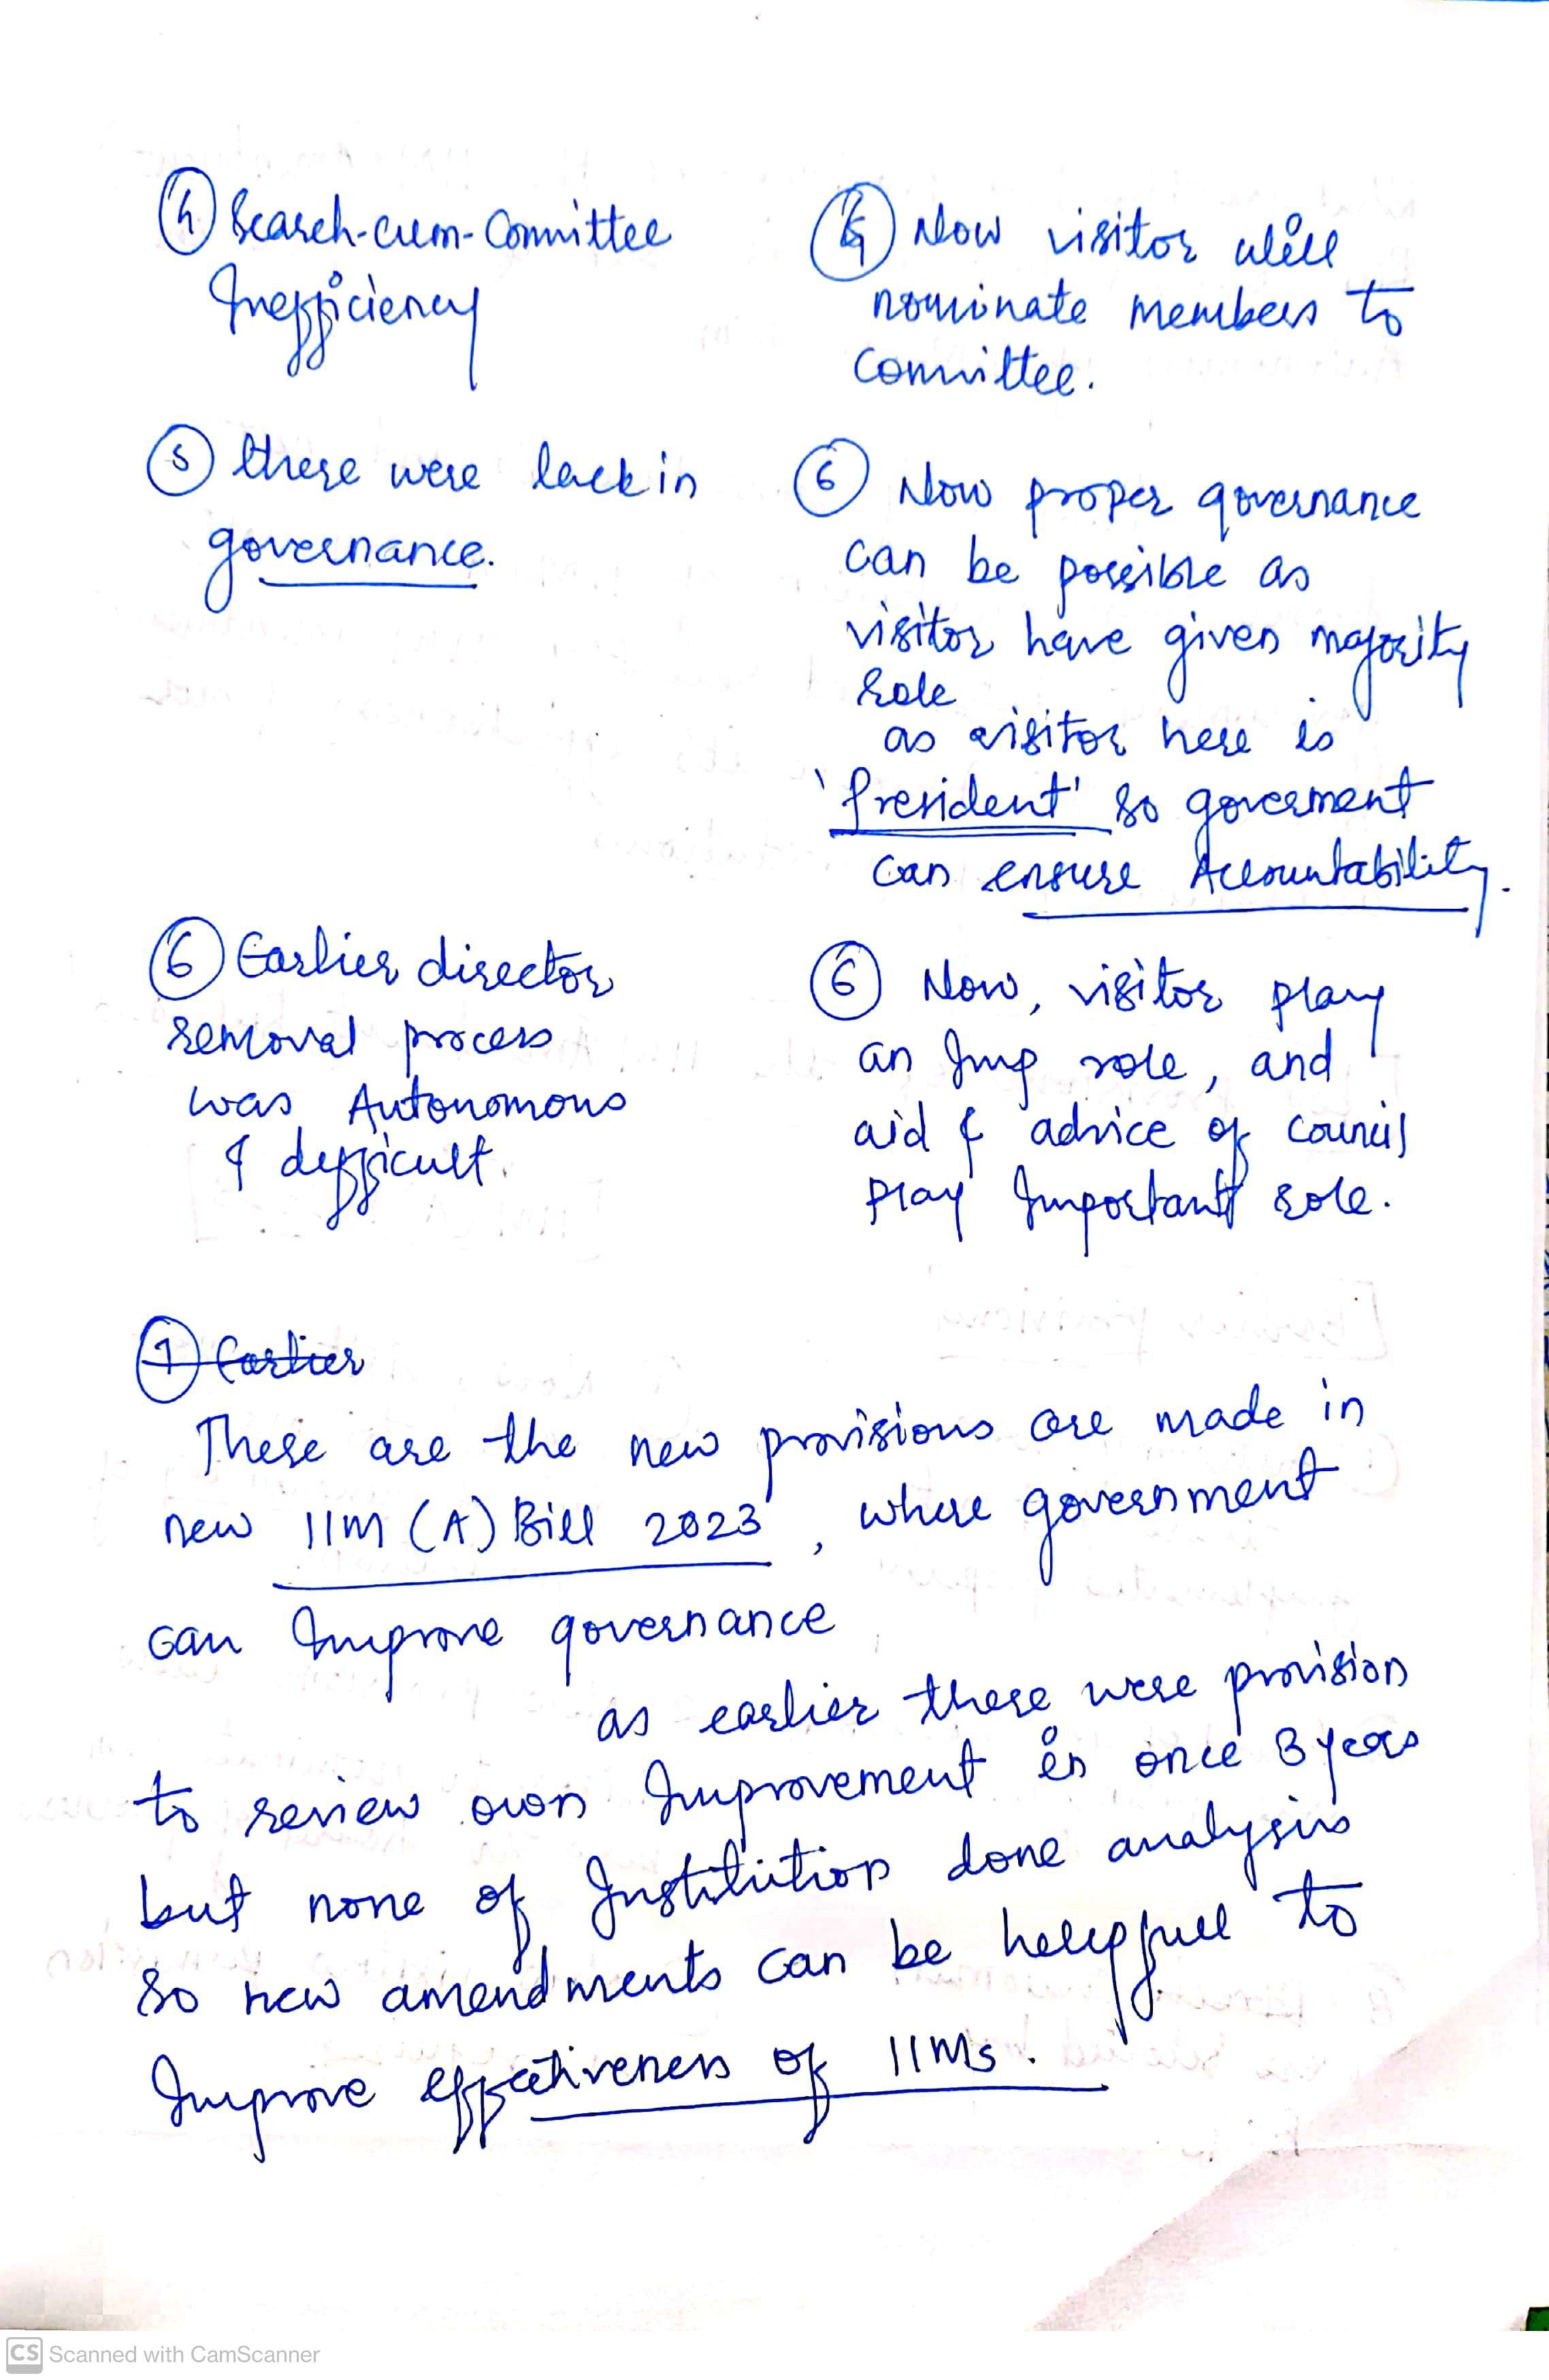 ④ Search-cum-Committee
Inefficiency
④ Now visitor will
nominate members to
Committee.
⑤ there were lack in
governance.
⑥ Now proper governance
can be possible as
visitor have given majority
role
as visitor here is
'President' so goverment
can ensure Accountability.
⑥ Earlier director
removal process
was Autonomous
& difficult.
⑥ Now, visitor play
an Imp role, and
aid & advice of council
play Important role.
⑦ Earlier
These are the new provisions are made in
new IIM (A) Bill 2023, where government
can Improve governance
as earlier there were provision
to review own Improvement in once 3 years
but none of Institution done analysis
so new amendments can be helepfull to
Improve effectiveness of IIMs.
CS Scanned with CamScanner